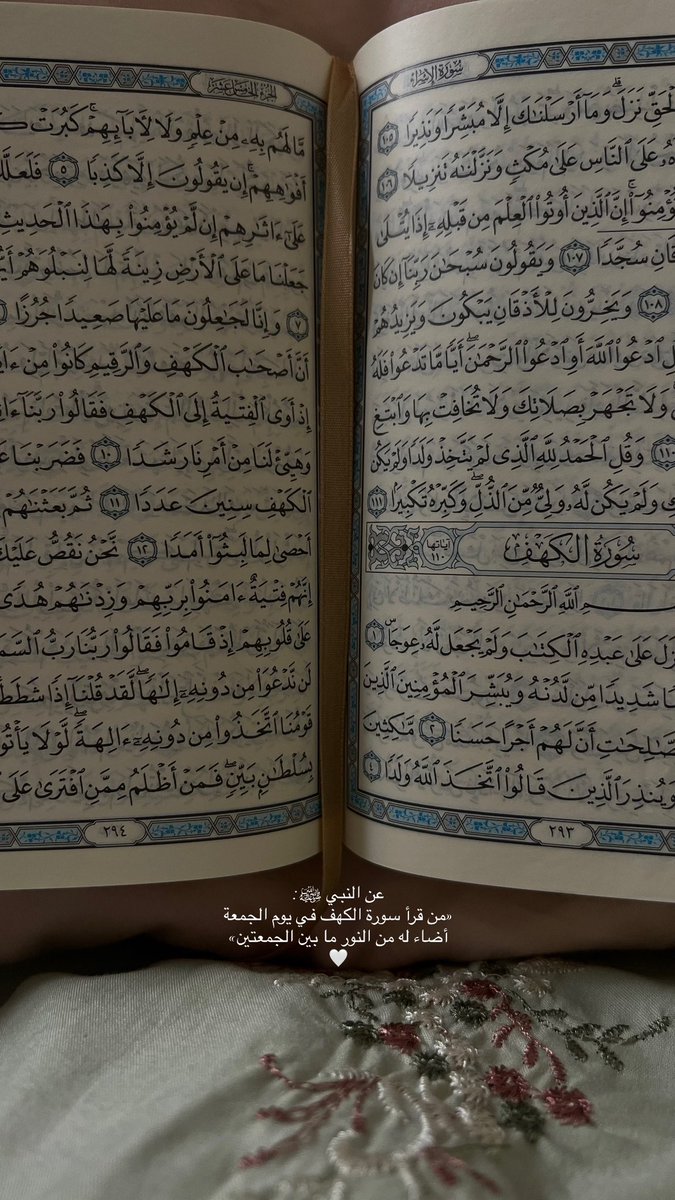 سُورَةُ الإِسْرَاءِ
لْحَقِّ نَزَلَ ۗ وَمَآ أَرْسَلْنَـٰكَ إِلَّا مُبَشِّرًا وَنَذِيرًا ١٠٥
هُۥ عَلَى ٱلنَّاسِ عَلَىٰ مُكْثٍ وَنَزَّلْنَـٰهُ تَنزِيلًا ١٠٦
ؤْمِنُوٓا۟ ۚ إِنَّ ٱلَّذِينَ أُوتُوا۟ ٱلْعِلْمَ مِن قَبْلِهِۦٓ إِذَا يُتْلَىٰ
قَانِ سُجَّدًا ١٠٧ وَيَقُولُونَ سُبْحَـٰنَ رَبِّنَآ إِن كَانَ
١٠٨ وَيَخِرُّونَ لِلْأَذْقَانِ يَبْكُونَ وَيَزِيدُهُمْ
لِ ٱدْعُوا۟ ٱللَّهَ أَوِ ٱدْعُوا۟ ٱلرَّحْمَـٰنَ ۖ أَيًّا مَّا تَدْعُوا۟ فَلَهُ
وَلَا تَجْهَرْ بِصَلَاتِكَ وَلَا تُخَافِتْ بِهَا وَٱبْتَغِ
١١٠ وَقُلِ ٱلْحَمْدُ لِلَّهِ ٱلَّذِى لَمْ يَتَّخِذْ وَلَدًا وَلَمْ يَكُن
كِ وَلَمْ يَكُن لَّهُۥ وَلِىٌّ مِّنَ ٱلذُّلِّ ۖ وَكَبِّرْهُ تَكْبِيرًۢا ١١١
سُورَةُ الكَهْفِ آياتها ١١٠
سْمِ ٱللَّهِ ٱلرَّحْمَـٰنِ ٱلرَّحِيمِ
نزَلَ عَلَىٰ عَبْدِهِ ٱلْكِتَـٰبَ وَلَمْ يَجْعَل لَّهُۥ عِوَجَا ۜ ١
سًا شَدِيدًا مِّن لَّدُنْهُ وَيُبَشِّرَ ٱلْمُؤْمِنِينَ ٱلَّذِينَ
صَّـٰلِحَـٰتِ أَنَّ لَهُمْ أَجْرًا حَسَنًا ٢ مَّـٰكِثِينَ
وَيُنذِرَ ٱلَّذِينَ قَالُوا۟ ٱتَّخَذَ ٱللَّهُ وَلَدًا ٤
٢٩٣
الجزء الخامس عشر
مَّا لَهُم بِهِۦ مِنْ عِلْمٍ وَلَا لِـَٔابَآئِهِمْ ۚ كَبُرَتْ كَ
أَفْوَٰهِهِمْ ۚ إِن يَقُولُونَ إِلَّا كَذِبًا ٥ فَلَعَلَّكَ
عَلَىٰٓ ءَاثَـٰرِهِمْ إِن لَّمْ يُؤْمِنُوا۟ بِهَـٰذَا ٱلْحَدِيثِ
جَعَلْنَا مَا عَلَى ٱلْأَرْضِ زِينَةً لَّهَا لِنَبْلُوَهُمْ أَيُّ
٧ وَإِنَّا لَجَـٰعِلُونَ مَا عَلَيْهَا صَعِيدًا جُرُزًا
أَنَّ أَصْحَـٰبَ ٱلْكَهْفِ وَٱلرَّقِيمِ كَانُوا۟ مِنْ ءَايَ
إِذْ أَوَى ٱلْفِتْيَةُ إِلَى ٱلْكَهْفِ فَقَالُوا۟ رَبَّنَآ ءَاتِ
وَهَيِّئْ لَنَا مِنْ أَمْرِنَا رَشَدًا ١٠ فَضَرَبْنَا عَ
ٱلْكَهْفِ سِنِينَ عَدَدًا ١١ ثُمَّ بَعَثْنَـٰهُمْ
أَحْصَىٰ لِمَا لَبِثُوٓا۟ أَمَدًا ١٢ نَّحْنُ نَقُصُّ عَلَيْكَ
إِنَّهُمْ فِتْيَةٌ ءَامَنُوا۟ بِرَبِّهِمْ وَزِدْنَـٰهُمْ هُدًى
عَلَىٰ قُلُوبِهِمْ إِذْ قَامُوا۟ فَقَالُوا۟ رَبُّنَا رَبُّ ٱلسَّمَ
لَن نَّدْعُوَا۟ مِن دُونِهِۦٓ إِلَـٰهًا ۖ لَّقَدْ قُلْنَآ إِذًا شَطَطًا
قَوْمُنَا ٱتَّخَذُوا۟ مِن دُونِهِۦٓ ءَالِهَةً ۖ لَّوْلَا يَأْتُو
بِسُلْطَـٰنٍۭ بَيِّنٍ ۖ فَمَنْ أَظْلَمُ مِمَّنِ ٱفْتَرَىٰ عَلَى
٢٩٤
عن النبي ﷺ :
«من قرأ سورة الكهف في يوم الجمعة
أضاء له من النور ما بين الجمعتين»
🤍